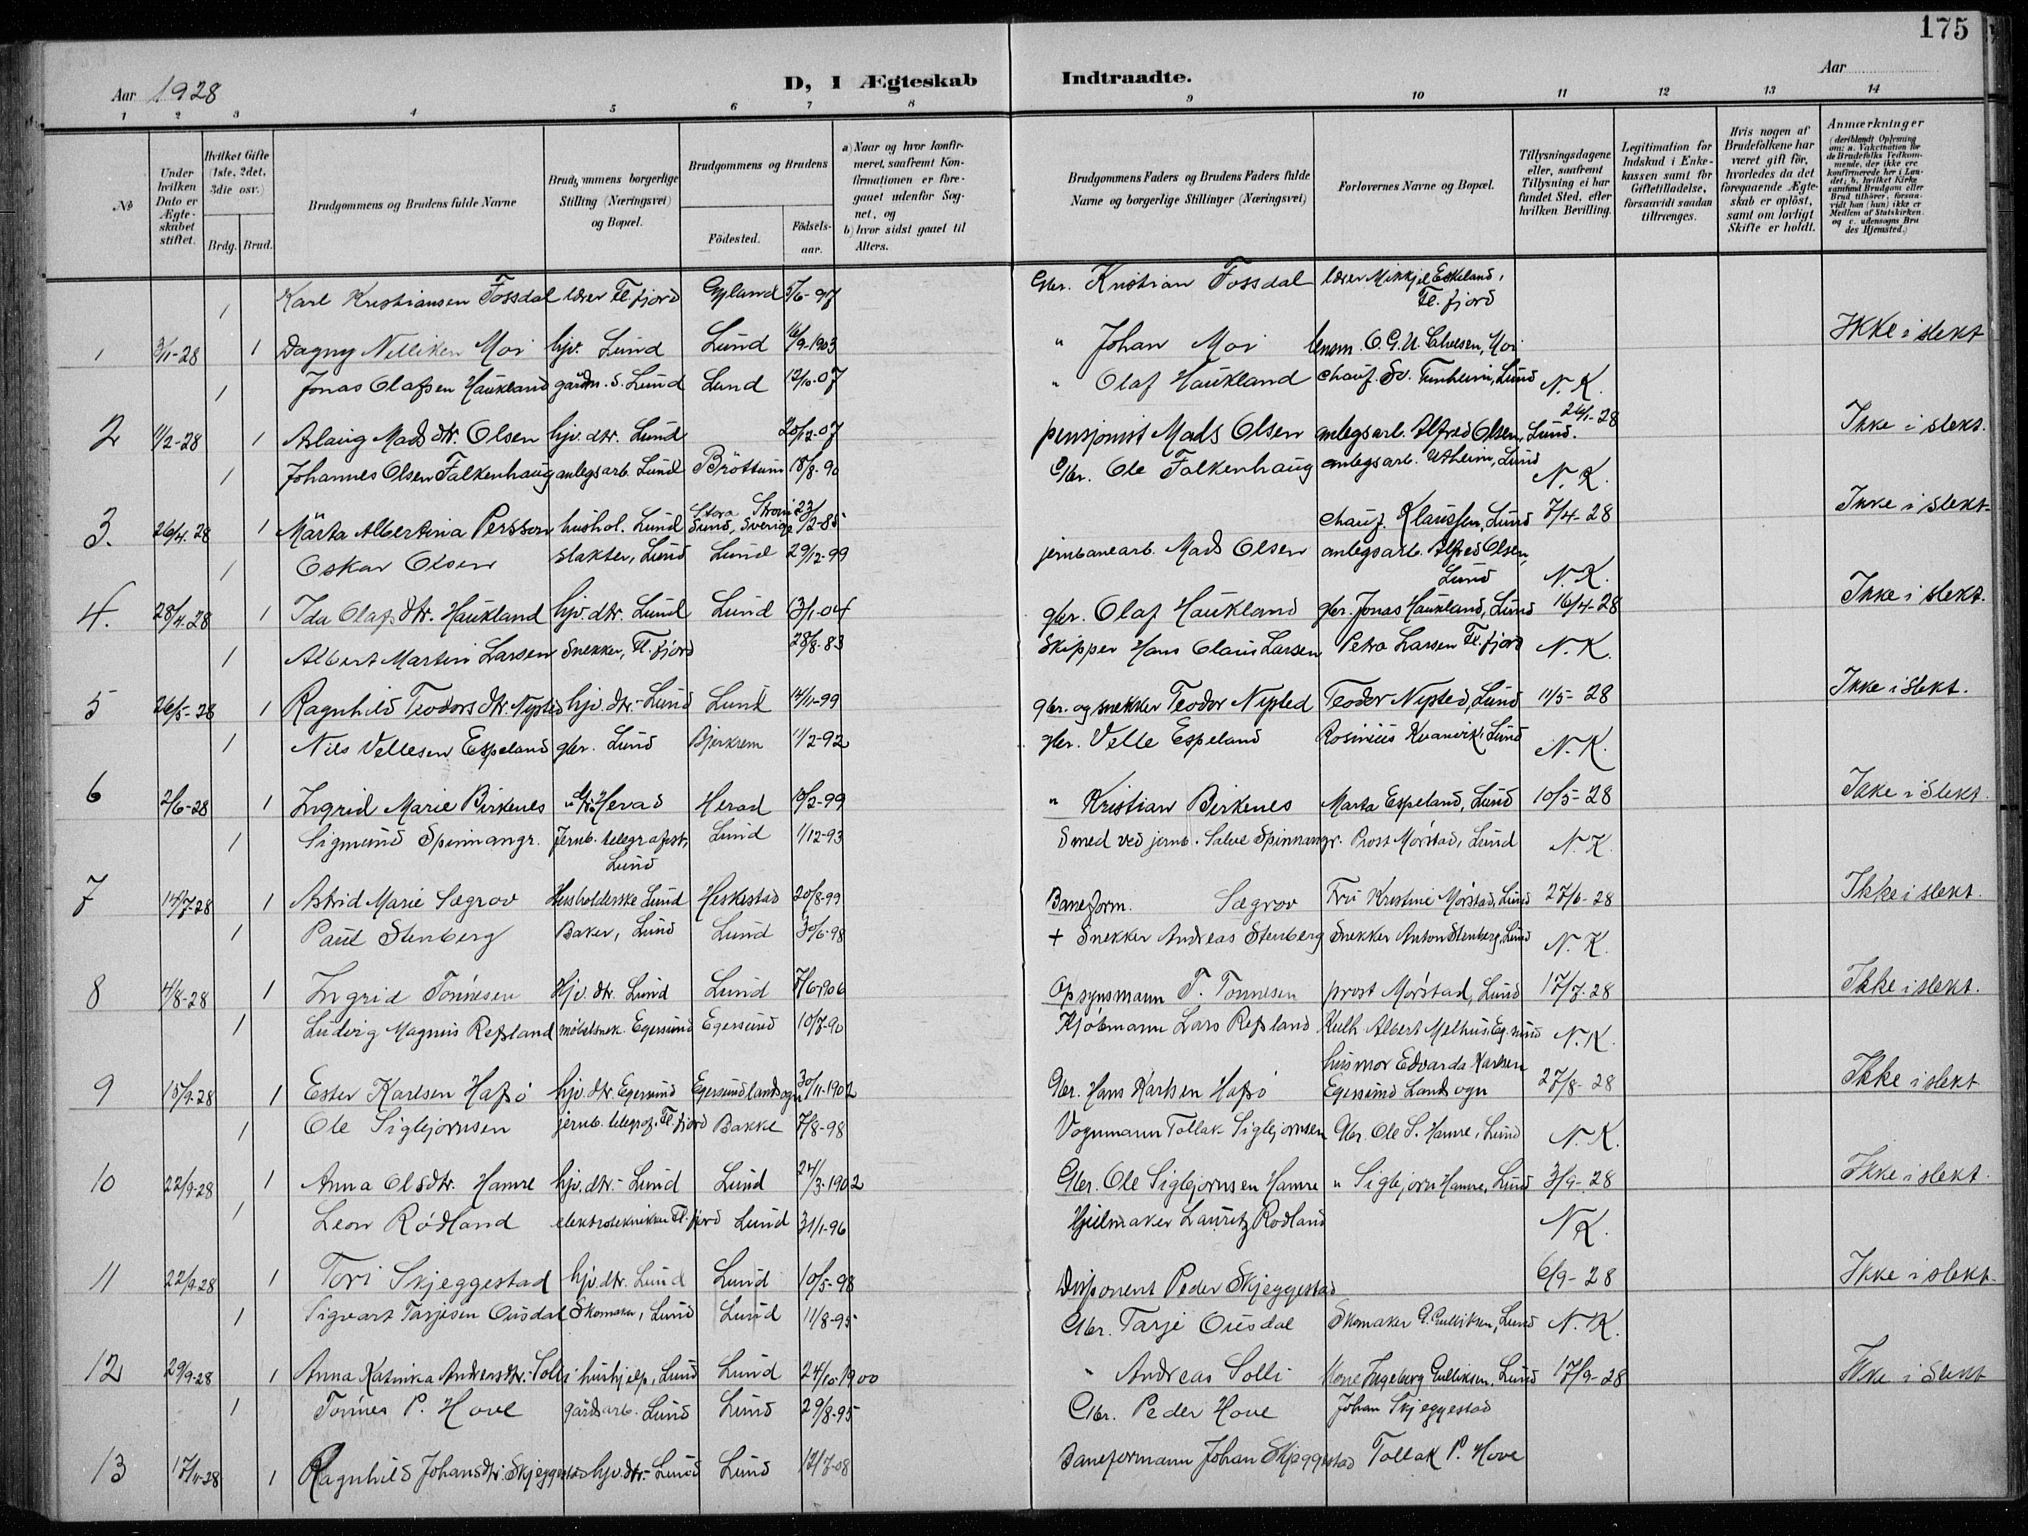 175
Aar 1928
D, I Ægteskab Indtraadte.
Aar
1 2 3 4 5 6 7 8 9 10 11 12 13 14
№
Under hvilken Dato er Ægteskabet stiftet.
Hvilket Gifte (1ste, 2det, 3die osv.)
Brdg. Brud.
Brudgommens og Brudens fulde Navne
Brudgommens borgerlige Stilling (Næringsvei) og Bopæl.
Brudgommens og Brudens
Födested.
Födselsaar.
a) Naar og hvor konfirmeret, saafremt Konfirmationen er foregaaet udenfor Sognet, og
b) hvor sidst gaaet til Alters.
Brudgommens Faders og Brudens Faders fulde Navne og borgerlige Stillinger (Næringsvei)
Forlovernes Navne og Bopæl.
Tillysningsdagene eller, saafremt Tillysning ei har fundet Sted, efter hvilken Bevilling.
Legitimation for Indskud i Enkekassen samt for Giftetilladelse, forsaavidt saadan tiltrænges.
Hvis nogen af Brudefolkene har været gift för, hvorledes da det foregaaende Ægteskab er oplöst, samt om lovligt Skifte er holdt.
Anmærkninger (deriblandt Oplysning om: a. Vakcination for de Brudefolks Vedkommende, der ikke ere konfirmerede her i Landet; b. hvilket Kirkesamfund Brudgom eller Brud tilhörer, forsaavidt han (hun) ikke er Medlem af Statskirken. og c. udensogns Brudes Hjemsted.)
1 Karl Kristiansen Fossdal lærer Fl. fjord Gyland 5/6-97 Gbr. Kristian Fossdal lærer Mikkjel Eskeland, Fl. fjord
1 3/1-28 1 Dagny Nelliken Moi hjv. Lund Lund 16/9-1903 " Johan Moi lensm. O.G.U. , Moi Ikke i slekt
1 Jonas Olafsen Haukland gårdm. s. Lund Lund 12/10-07 " Olaf Haukland chauf. Sv. Tunheim, Lund N. K.
2 11/2-28 1 Aslaug Mads dtr. Olsen hjv. dtr. Lund 20/12-07 pensjonist Mads Olsen anlegsarb. Alfred Olsen, Lund. 24/1-28 Ikke i slekt.
1 Johannes Olsen Falkenhaug anlegsarb. Lund Bröttum 18/8-90 Gbr. Ole Falkenhaug anlegsarb. Utheim, Lund N. K.
3. 26/4-28 1 Märta Albertina Persson hushol. Lund Stora Sund, Sverige 23/2-85 chauf. Klaussen, Lund 7/4-28 Ikke i slekt.
1 Oskar Olsen slakter, Lund Lund 29/12-99 jernbanearb. Mads Olsen anlegsarb. Alfred Olsen, Lund N. K.
4. 28/4-28 1 Ida Olafs dtr. Haukland hjv. dtr. Lund Lund 13/1-04 gbr. Olaf Haukland gbr. Jonas Haukland, Lund 16/4-28 Ikke i slekt.
1 Albert Martin Larsen Snekker, Fl. fjord 28/8-83 Skipper Hans Olaus Larsen Petra Larsen Fl. fjord N. K.
5 26/5-28 1 Ragnhild Teodors dtr. Nysted hjv. dtr. Lund Lund 14/11-99 gbr. og snekker Teodor Nysted Teodor Nysted, Lund 11/5-28 Ikke i slekt.
1 Nils Vellesen Espeland gbr. Lund Bjerkrem 11/2-92 gbr. Velle Espeland Rosinius Kvanvik, Lund N. K.
6 2/6-28 1 Ingrid Marie Birkenes " Herad Herad 18/2-99 " Kristian Birkenes Marta Espeland, Lund 10/5-28 Ikke i slekt.
1 Sigmund Spinnangr. Jernb. telegrafist, Lund Lund 1/12-93 Smed ved jernb. Salve Spinnangr. Prost Mørstad, Lund N. K.
7 14/7-28 1 Astrid Marie Sægrov Husholderske Lund Heskestad 20/8-99 Baneform. Sægrov Fru Kristine Mørstad, Lund 27/6-28 Ikke i slekt.
1 Paul Stenberg Baker, Lund Lund 30/6-98 + Snekker Andreas Stenberg Snekker Anton Stenberg, Lund N. K.
8 4/8-28 1 Ingrid Tönnesen Hjv. dtr. Lund Lund 7/6-1906 Opsynsmann T. Tonnesen prost Mørstad, Lund 17/7-28 Ikke i slekt.
1 Ludvig Magnus Refsland møbelsnek. Egersund Egersund 10/7-90 Kjöbmann Lars Refsland Albert Melhus, Eg.sund N. K.
9 15/9-28 1 Ester Karlsen Hafsø hjv. dtr. Egersund Egersund landsogn 30/11-1902 Gbr. Hans Karlsen Hafsø husmor Edvarda Karlsen Egersund Landsogn 27/8-28 Ikke i slekt
1 Ole Sigbjørnsen jernb. telegraf. Fl. fjord Bakke 7/8-98 Vognmann Tollak Sigbjørnsen Gbr. Ole S. Hamre, Lund N. K.
10 22/9-28 1 Anna Olsdtr. Hamre hjv. dtr. Lund Lund 24/3-1902 Gbr. Ole Sigbjornsen Hamre " Sigbjorn Hamre, Lund 3/9-28 Ikke i slekt.
1 Leon Rødland elektrotekniker Fl. fjord Lund 31/1-96 Hjulmaker Lauritz Rodland N K.
11 22/9-28 1 Tori Skjeggestad hjv. dtr. Lund Lund 10/5-98 Disponent Peder Skjeggestad 6/9-28 Ikke i slekt.
1 Sigvart Tarjesen Ousdal Skomaker, Lund Lund 11/8-95 Gbr. Tarje Ousdal Skomaker G. Gulliksen, Lund N. K.
12 29/9-28 1 Anna Katinka Andersdtr. Solli hushjelp, Lund Lund 24/10-1900 " Andreas Solli Kone Ingeborg Gulliksen, Lund 17/9-28 Ikke i slekt
1 Tönnes P. Hove gårdsarb. Lund Lund 29/8-95 Gbr. Peder Hove Johan Skjeggestad
13 17/11-28 1 Ragnhild Johansdtr. Skjeggestad hjv. dtr. Lund Lund 12/7-08 Baneformann Johan Skjeggestad Tollak P. Hove